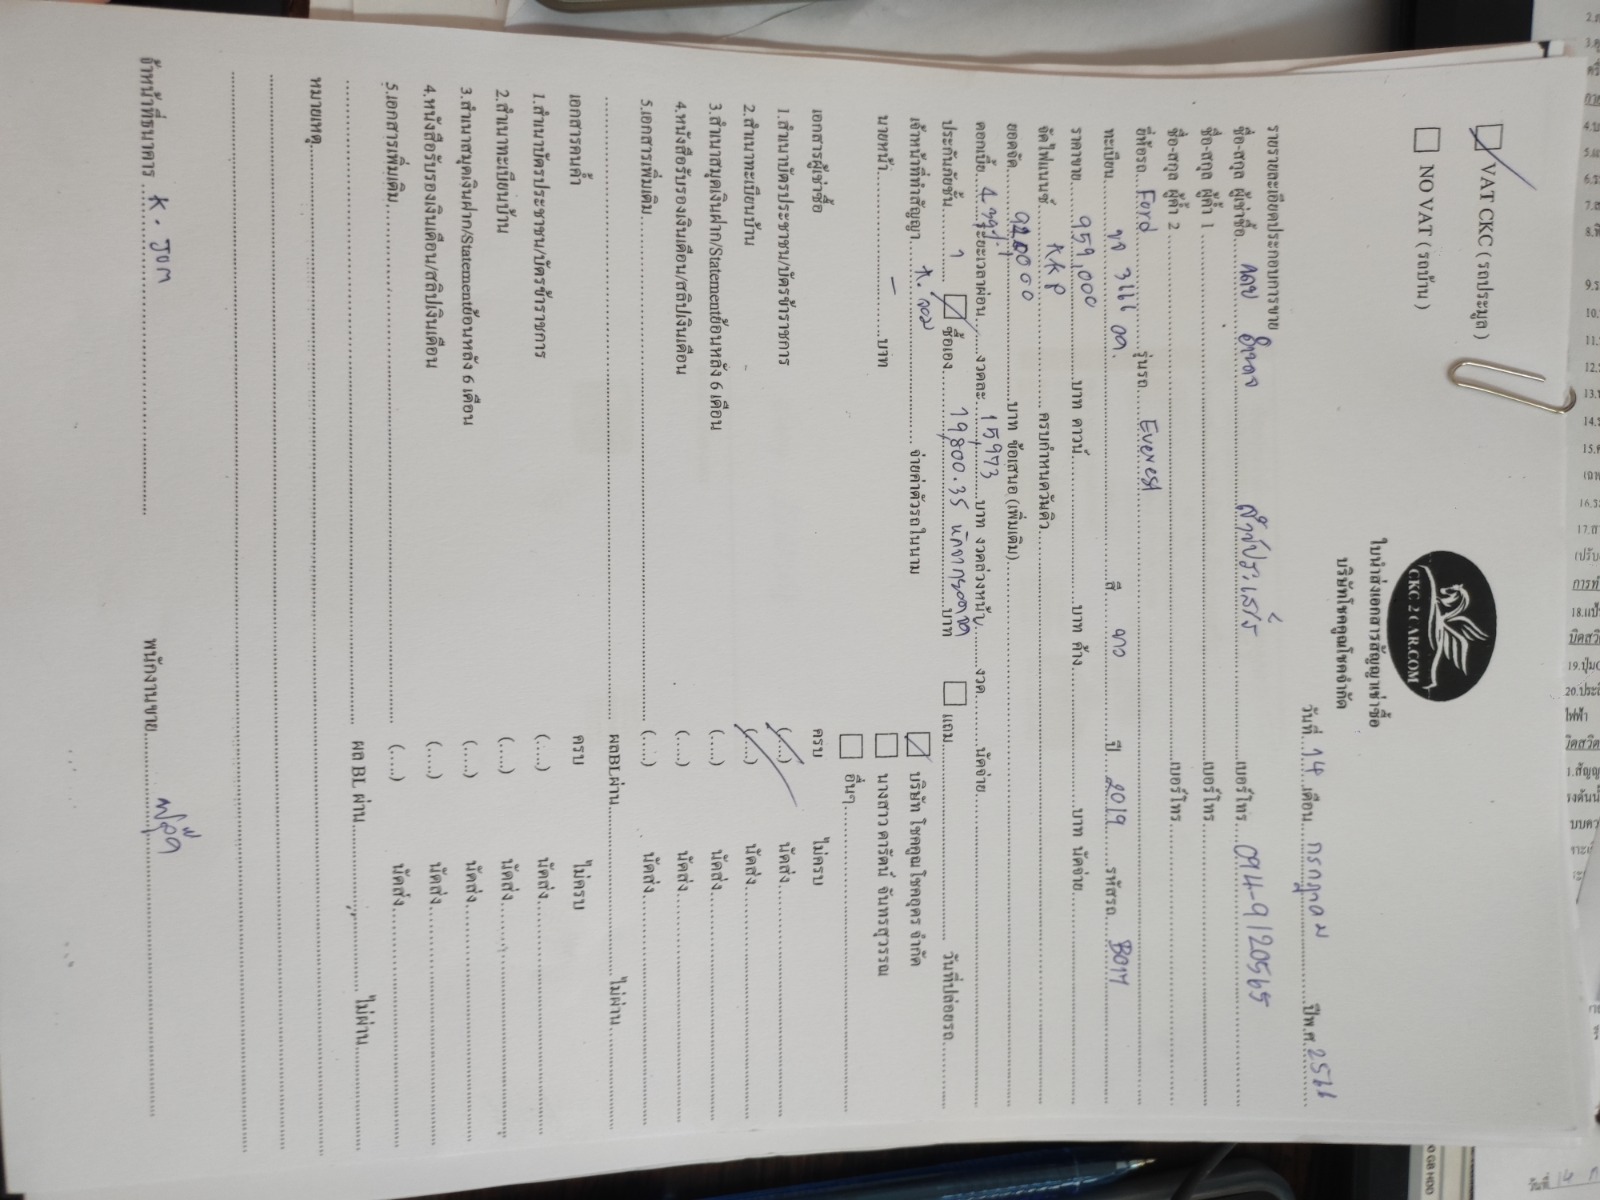 VAT CKC ( รถประมูล )
NO VAT ( รถบ้าน )
CKC 2 CAR.COM
ใบนำส่งเอกสารสัญญาเช่าซื้อ
บริษัทโชคคูณโชคจำกัด
วันที่...14...เดือน...กรกฎาคม...ปีพ.ศ.2566
รายรายละเอียดประกอบการขาย
ชื่อ-สกุล ผู้เช่าซื้อ ... เบอร์โทร...094-9120565
ชื่อ-สกุล ผู้ค้ำ 1...เบอร์โทร...
ชื่อ-สกุล ผู้ค้ำ 2...เบอร์โทร...
ยี่ห้อรถ Ford รุ่นรถ Everest
ทะเบียน ... 3166 อด. สี ขาว ปี 2019 รหัสรถ B017
ราคาขาย 959,000 บาท ดาวน์...บาท ค้าง...บาท นัดจ่าย
จัดไฟแนนซ์ KKP ครบกำหนดวันคิว...
ยอดจัด ... บาท ข้อเสนอ (เพิ่มเติม)...
ดอกเบี้ย 4 ... ระยะเวลาผ่อน...งวดละ 15,973 บาท งวดล่วงหน้า...งวด...นัดจ่าย...
ประกันภัยชั้น 1 ซื้อเอง 19,800.35 หักจากยอดจัด บาท แถม...วันที่ปล่อยรถ...
เจ้าหน้าที่ทำสัญญา K. จอม จ่ายค่าตัวรถในนาม บริษัท โชคคูณโชคอุดร จำกัด
นายหน้า - บาท นางสาว ดารัตน์ จันทรสุวรรณ
อื่นๆ...
เอกสารผู้เช่าซื้อ ครบ ไม่ครบ
1.สำเนาบัตรประชาชน/บัตรข้าราชการ (....) นัดส่ง...
2.สำเนาทะเบียนบ้าน (....) นัดส่ง...
3.สำเนาสมุดเงินฝาก/Statementย้อนหลัง 6 เดือน (....) นัดส่ง...
4.หนังสือรับรองเงินเดือน/สลิปเงินเดือน (....) นัดส่ง...
5.เอกสารเพิ่มเติม... (....) นัดส่ง...
ผลBLผ่าน...ไม่ผ่าน...
เอกสารคนค้ำ ครบ ไม่ครบ
1.สำเนาบัตรประชาชน/บัตรข้าราชการ (....) นัดส่ง...
2.สำเนาทะเบียนบ้าน (....) นัดส่ง...
3.สำเนาสมุดเงินฝาก/Statementย้อนหลัง 6 เดือน (....) นัดส่ง...
4.หนังสือรับรองเงินเดือน/สลิปเงินเดือน (....) นัดส่ง...
5.เอกสารเพิ่มเติม... (....) นัดส่ง...
ผล BL ผ่าน...ไม่ผ่าน...
หมายเหตุ...
จ้าหน้าที่ธนาคาร K. จอม พนักงานขาย...